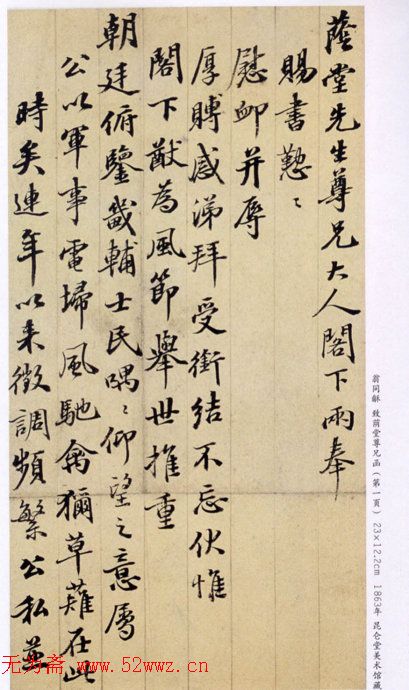 蔭堂先生尊兄大人閣下兩奉
賜書懃〻
慰卹并辱
厚賻感涕拜受銜結不忘伏惟
閣下猷為風節舉世推重
朝廷俯鑒畿輔士民喁〻仰望之意屬
公以軍事電掃風馳禽獮草薙在此
時矣連年以來徵調頻繁公私並
翁同龢 致荫堂尊兄函（第一页） 23×12.2cm 1863年 昆仑堂美术馆藏
无为斋 www.52wwz.cn